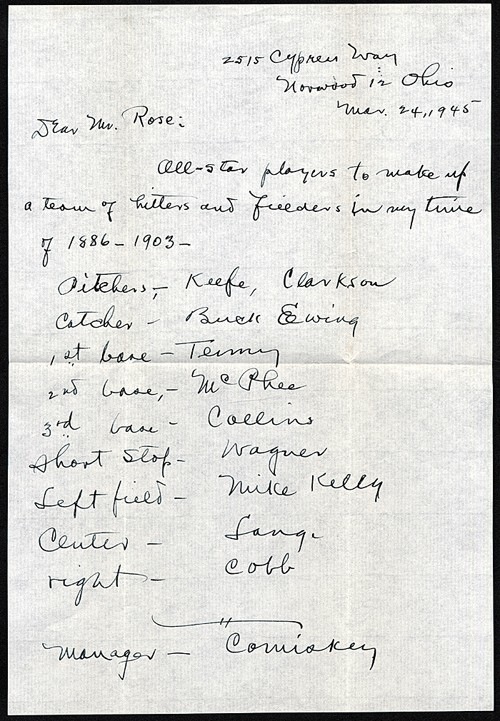 2515 Cypress Way
Norwood 12 Ohio
Mar. 24, 1945
Dear Mr. Rose:
All-star players to make up
a team of hitters and fielders in my time
of 1886-1903-
Pitchers,- Keefe, Clarkson
Catcher - Buck Ewing
1st base - Tenney
2nd base,- McPhee
3rd base - Collins
Short Stop- Wagner
Left field - Mike Kelly
Center - Lange
right - Cobb
Manager - Comiskey